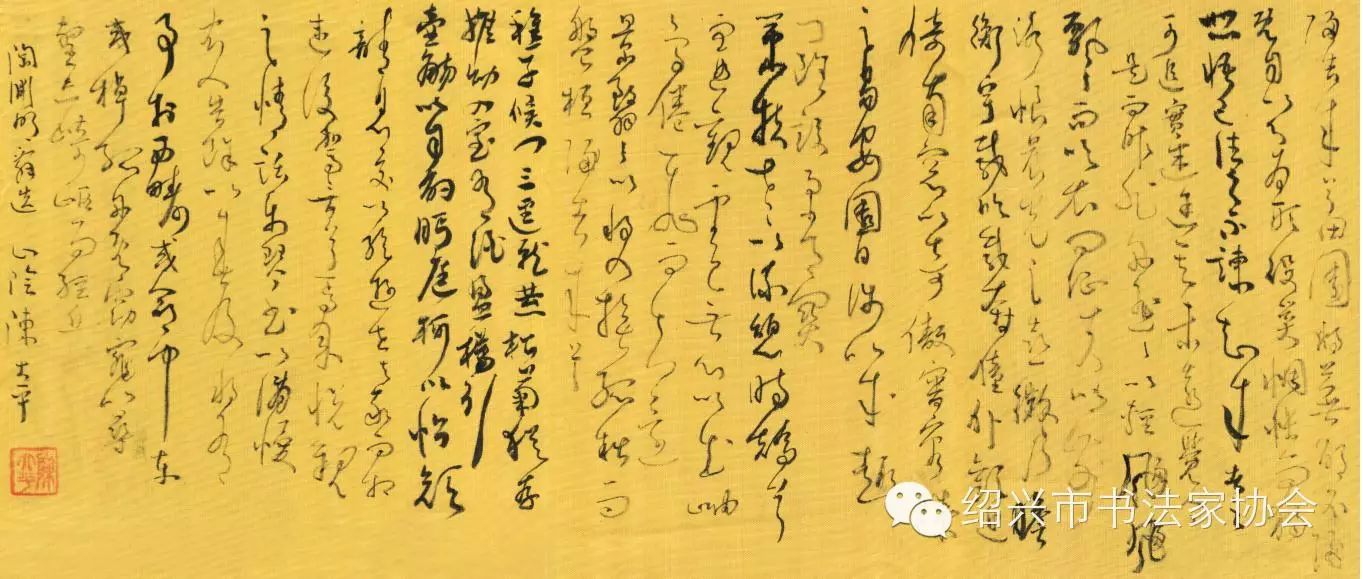 歸去來兮田園將蕪胡不歸
既自以心為形役奚惆悵而獨
悲悟已往之不諫知來者之
可追實迷途其未遠覺今
是而昨非舟遙遙以輕颺風飄
飄而吹衣問征夫以前
路恨晨光之熹微乃瞻
衡宇載欣載奔僮僕歡迎
倚南窗以寄傲審容膝
之易安園日涉以成趣
門雖設而常關
策扶老以流憩時矯首
而遐觀雲無心以出岫
鳥倦飛而知還
景翳翳以將入撫孤松而
盤桓歸去來兮
稚子候門三逕就荒松菊猶存
攜幼入室有酒盈樽引
壺觴以自酌眄庭柯以怡顏
請息交以絕遊世與我而相
違復駕言兮焉求悅親戚
之情話樂琴書以消憂
農人告余以春及將有
事於西疇或命巾車
或棹孤舟既窈窕以尋
壑亦崎嶇而經丘
陶淵明辭選 山陰陳大平
绍兴市书法家协会